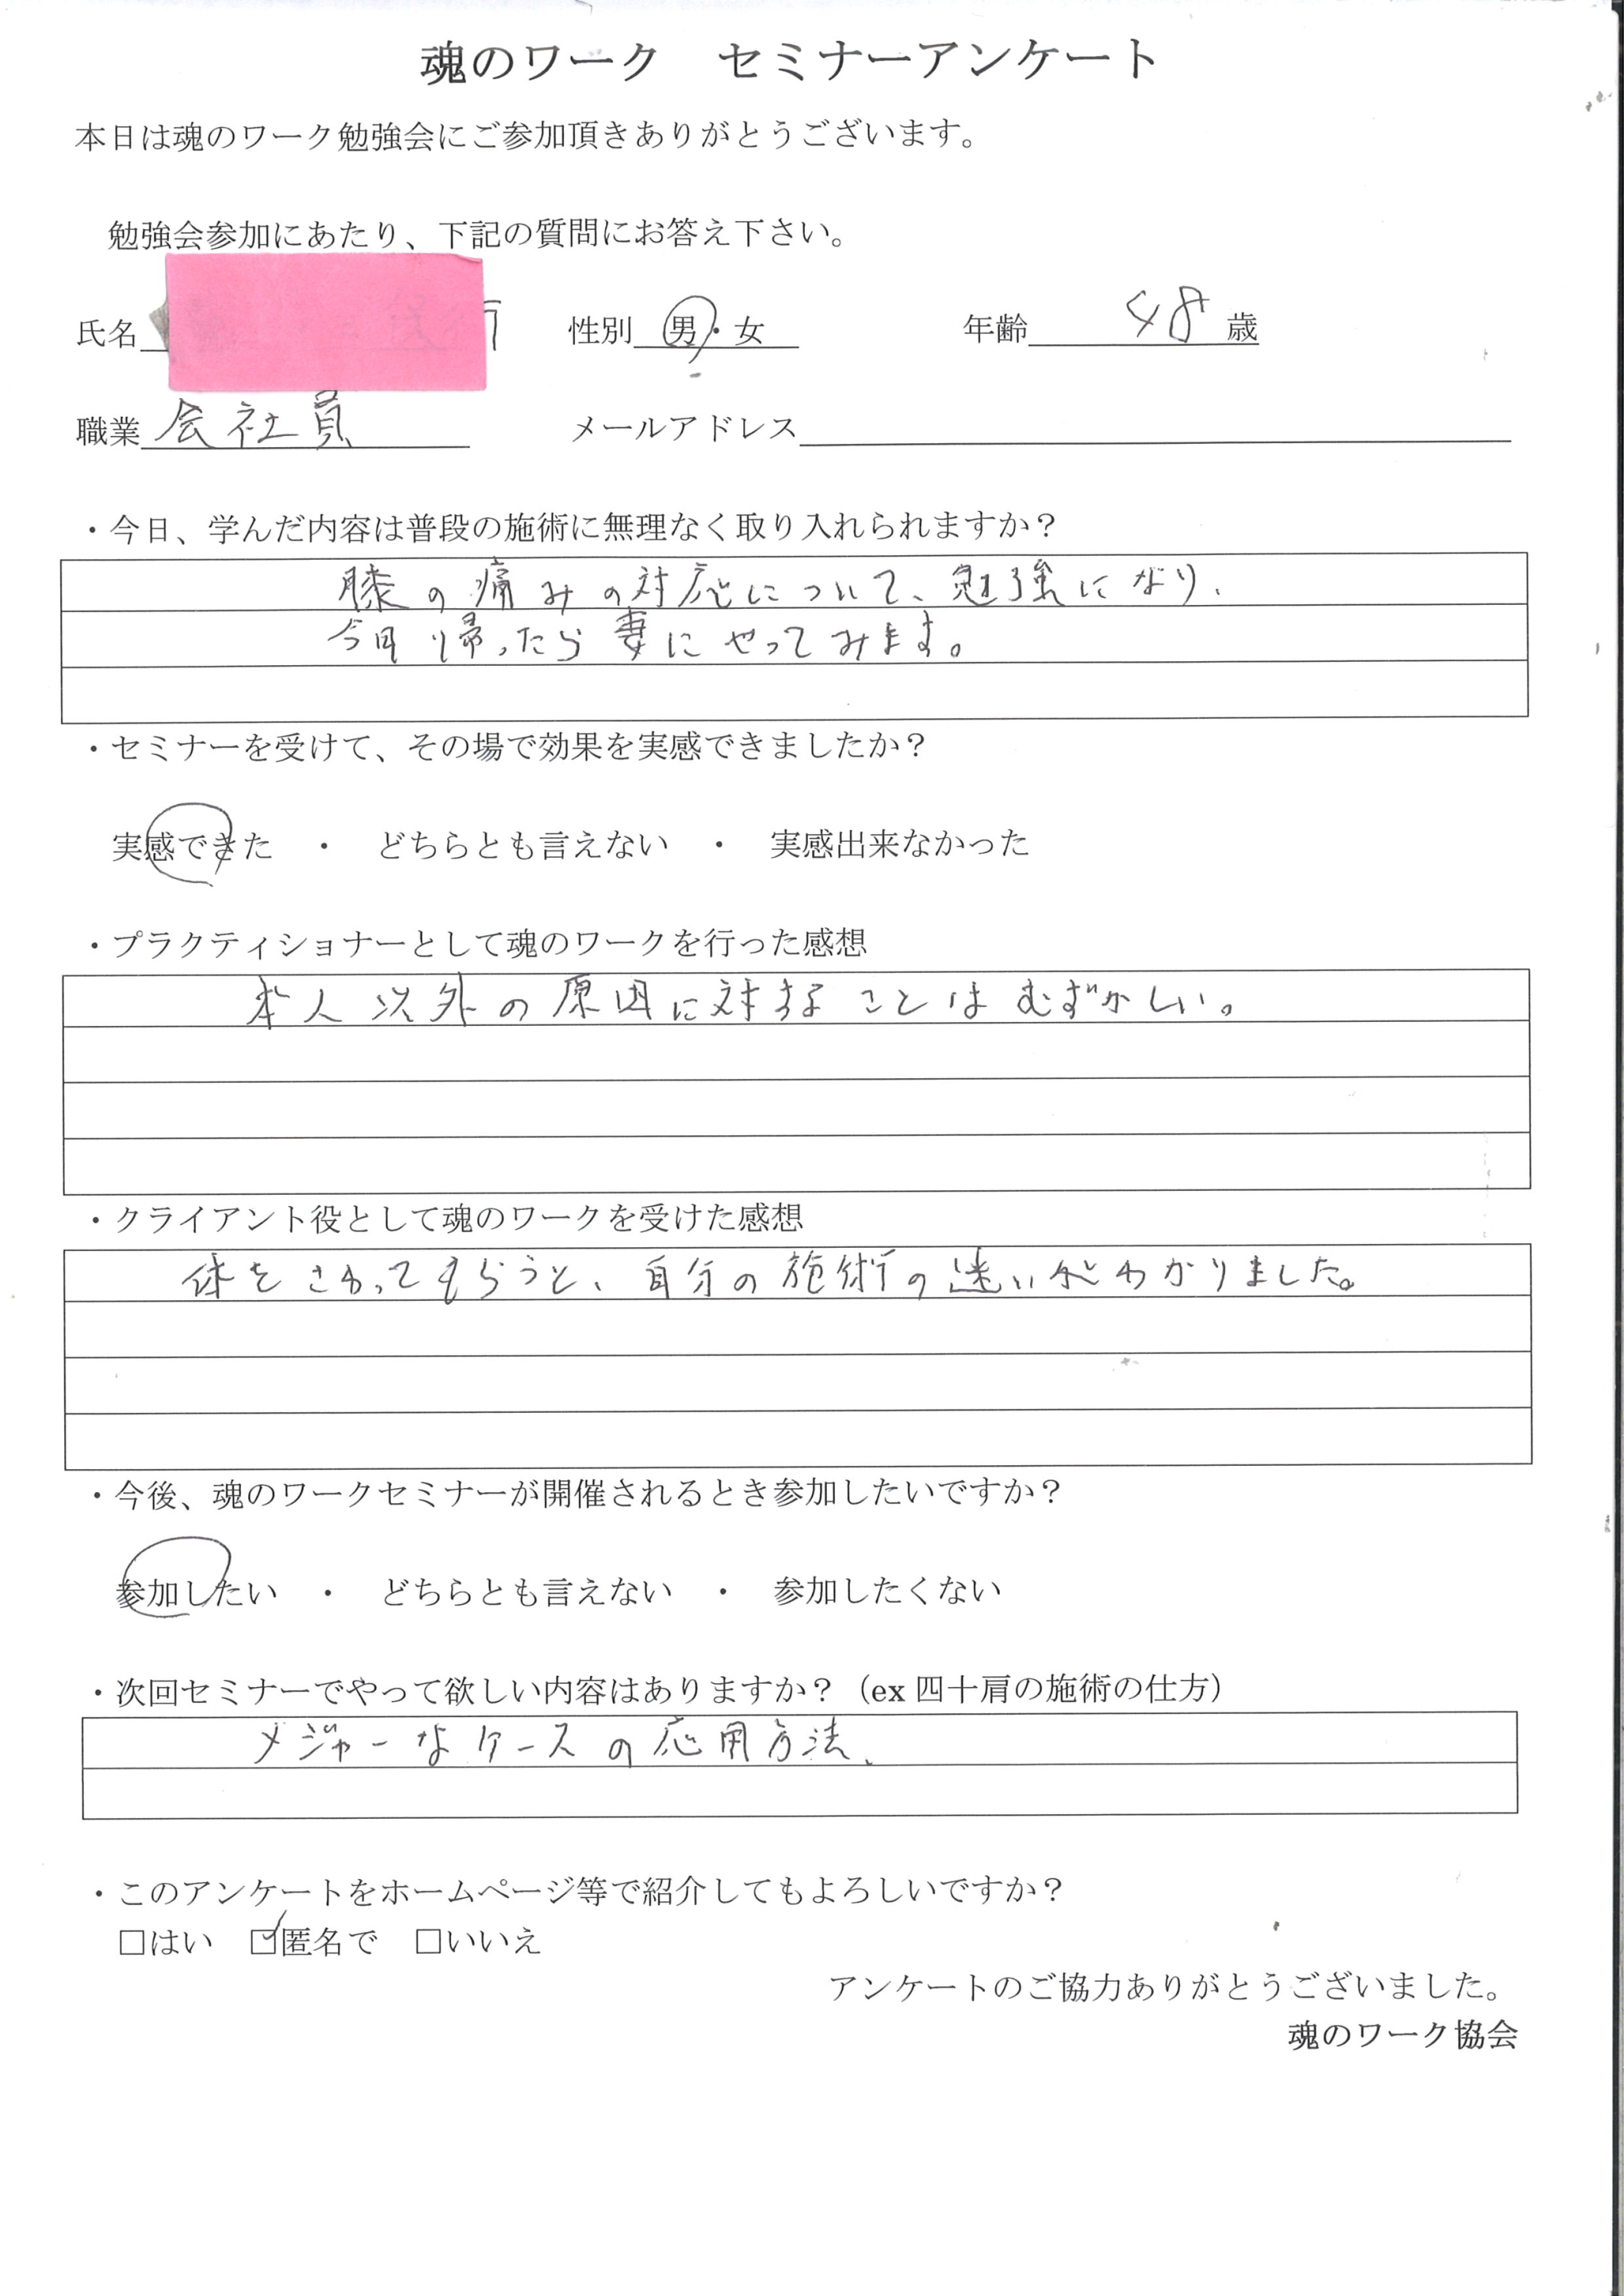 魂のワーク　セミナーアンケート
本日は魂のワーク勉強会にご参加頂きありがとうございます。
勉強会参加にあたり、下記の質問にお答え下さい。
氏名　性別　男・女　年齢　48　歳
職業　会社員　メールアドレス
・今日、学んだ内容は普段の施術に無理なく取り入れられますか？
膝の痛みの対応について、勉強になり、
今日帰ったら妻にやってみます。
・セミナーを受けて、その場で効果を実感できましたか？
実感できた　・　どちらとも言えない　・　実感出来なかった
・プラクティショナーとして魂のワークを行った感想
本人以外の原因に対することはむずかしい。
・クライアント役として魂のワークを受けた感想
体をさわってもらうと、自分の施術の違いがわかりました。
・今後、魂のワークセミナーが開催されるとき参加したいですか？
参加したい　・　どちらとも言えない　・　参加したくない
・次回セミナーでやって欲しい内容はありますか？（ex 四十肩の施術の仕方）
メジャーなケースの応用方法、
・このアンケートをホームページ等で紹介してもよろしいですか？
□はい　☑匿名で　□いいえ
アンケートのご協力ありがとうございました。
魂のワーク協会